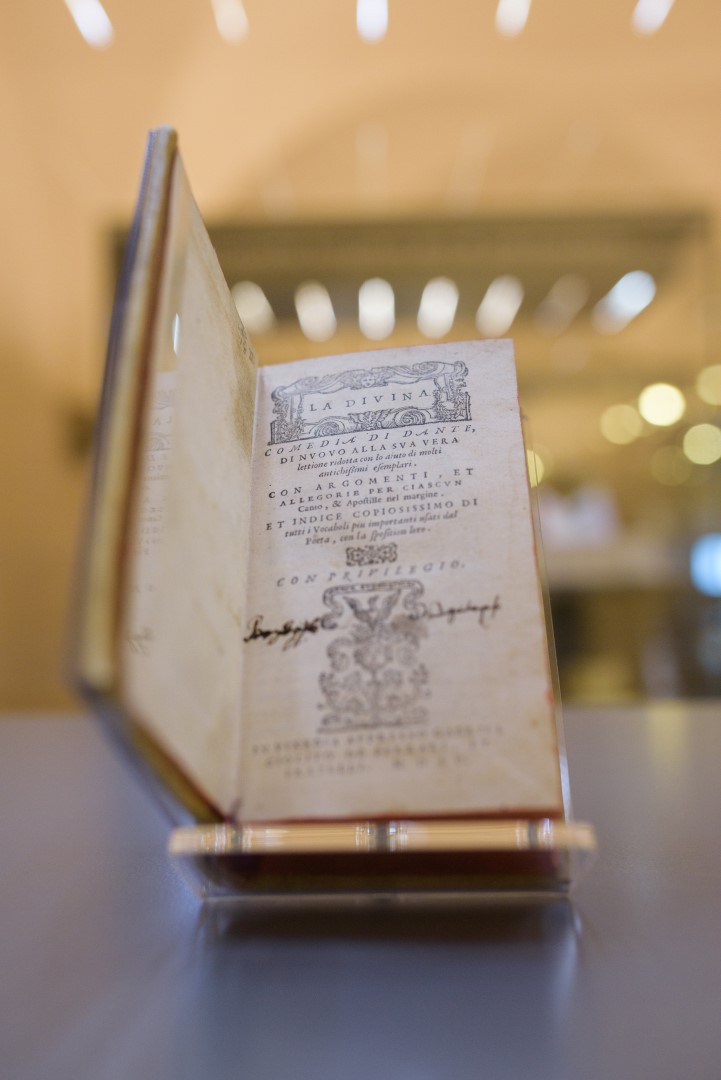 LA DIVINA
COMEDIA DI DANTE,
DI NVOVO ALLA SVA VERA
lettione ridotta con lo aiuto di molti
antichissimi esemplari.
CON ARGOMENTI, ET
ALLEGORIE PER CIASCVN
Canto, & Apostille nel margine.
ET INDICE COPIOSISSIMO DI
tutti i Vocaboli piu importanti usati dal
Poeta, con la sposition loro.
CON PRIVILEGIO.